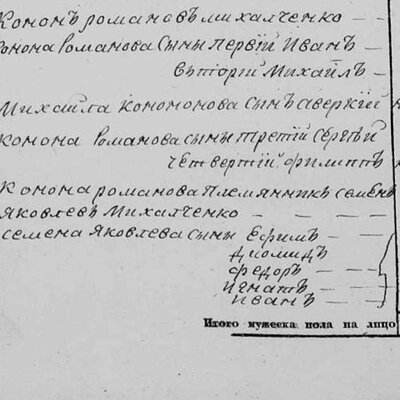 Кононъ романовъ михалченко
Конона Романова Сыны Первій Иванъ
вьторій Михайлъ
Михайла Конононова Сынъ аверкій
Конона Романова сыны третій Сергѣй
Четвертій филипъ
Конона романова Племянникъ семенъ
Яковлевъ Михалченко
семена Яковлева сыны Ефимъ
Диомидъ
федоръ
игнатъ
иванъ
Итого мужеска пола на лицо